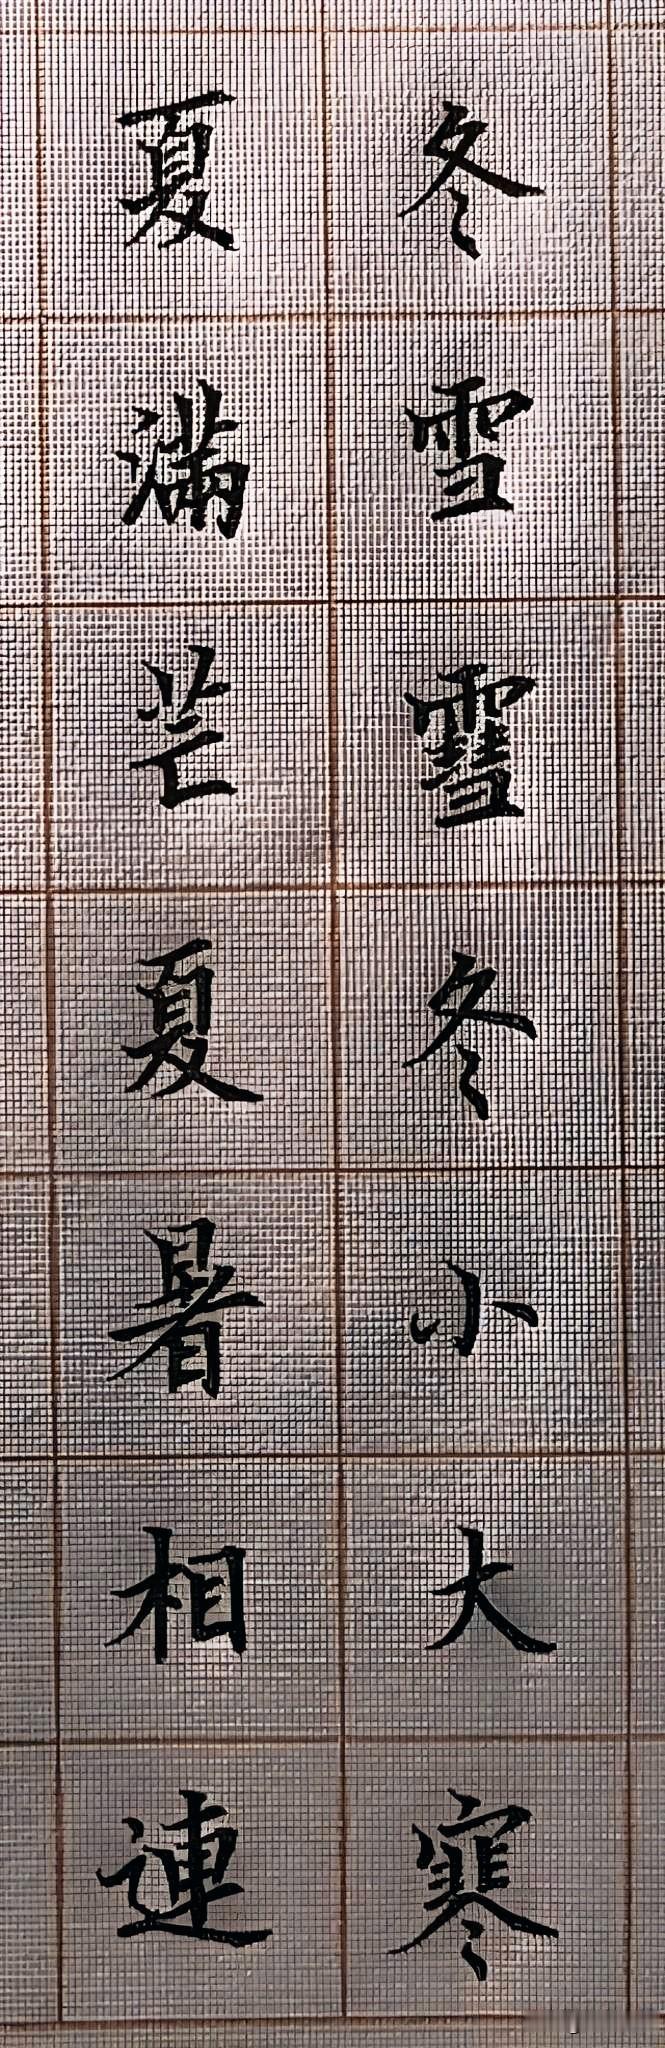 冬雪䨮冬小大寒
夏滿芒夏暑相連